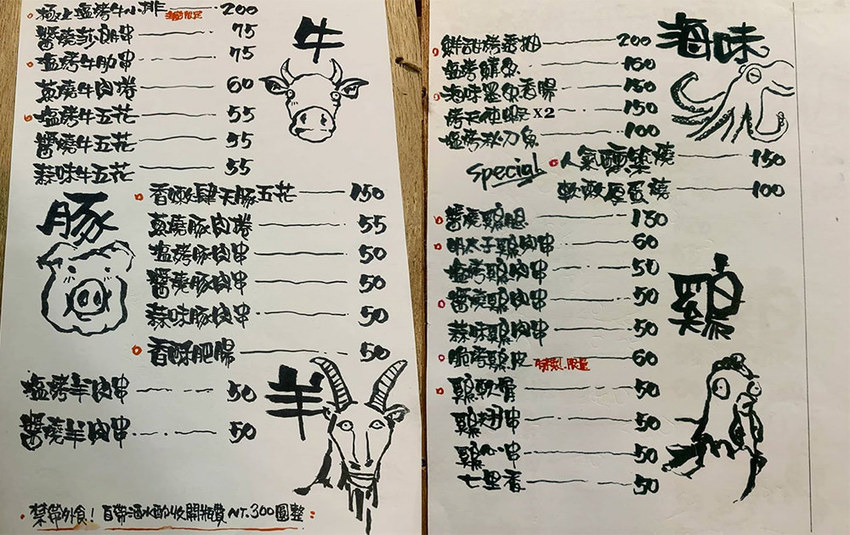 極上塩烤牛小排 200
醬燒莎朗串 75
塩烤牛肋串 75
蔥燒牛肉捲 60
塩烤牛五花 55
醬燒牛五花 55
蒜味牛五花 55
牛
香嫩肆天豚五花 150
蔥燒豚肉捲 55
塩烤豚肉串 50
醬燒豚肉串 50
蒜味豚肉串 50
香酥肥腸 50
豚
塩烤羊肉串 50
醬燒羊肉串 50
羊
禁帶外食！自帶酒水酌收開瓶費NT.300圓整
海味
鮮甜烤透抽 200
塩烤鯖魚 160
海味墨魚香腸 150
烤天使蝦 X2 150
塩烤秋刀魚 100
Special 人氣 燒 150
軟嫩厚蛋燒 100
醬燒雞腿 130
明太子雞肉串 60
塩烤雞肉串 50
醬燒雞肉串 50
蒜味雞肉串 50
脆烤雞皮 60
雞軟骨 50
雞翅串 50
雞心串 50
七里香 50
雞